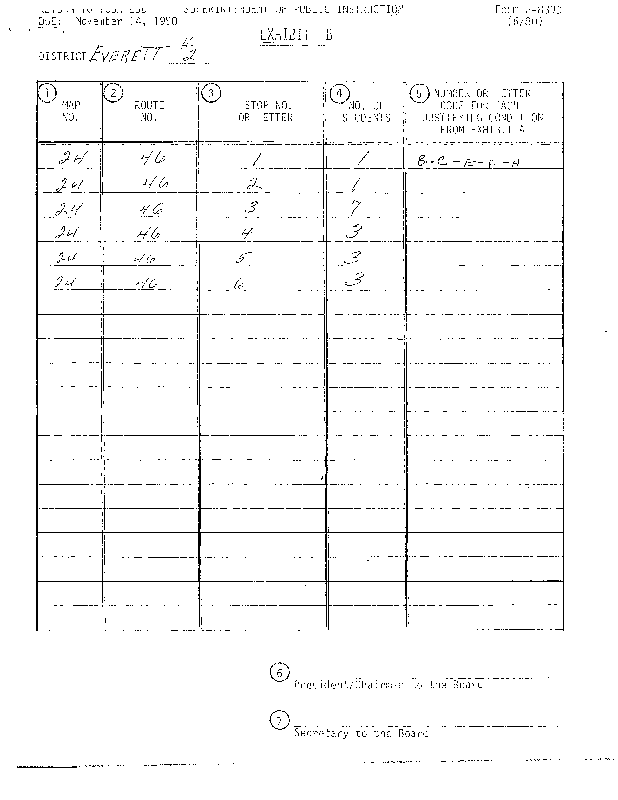 SUPERINTENDENT OF PUBLIC INSTRUCTION Form
DUE: November 14, 1990 (6/80)
EXHIBIT B
DISTRICT EVERETT #2
1 2 3 4 5
MAP NO. ROUTE NO. STOP NO. OR LETTER NO. OF STUDENTS NUMBER OR LETTER CODE FOR EACH JUSTIFYING CONDITION FROM EXHIBIT A
24 46 1 1 B-C-
24 46 2 1
24 46 3 7
24 46 4 3
24 46 5 3
24 46 6 3
6
President/Chairman to the Board
7
Secretary to the Board